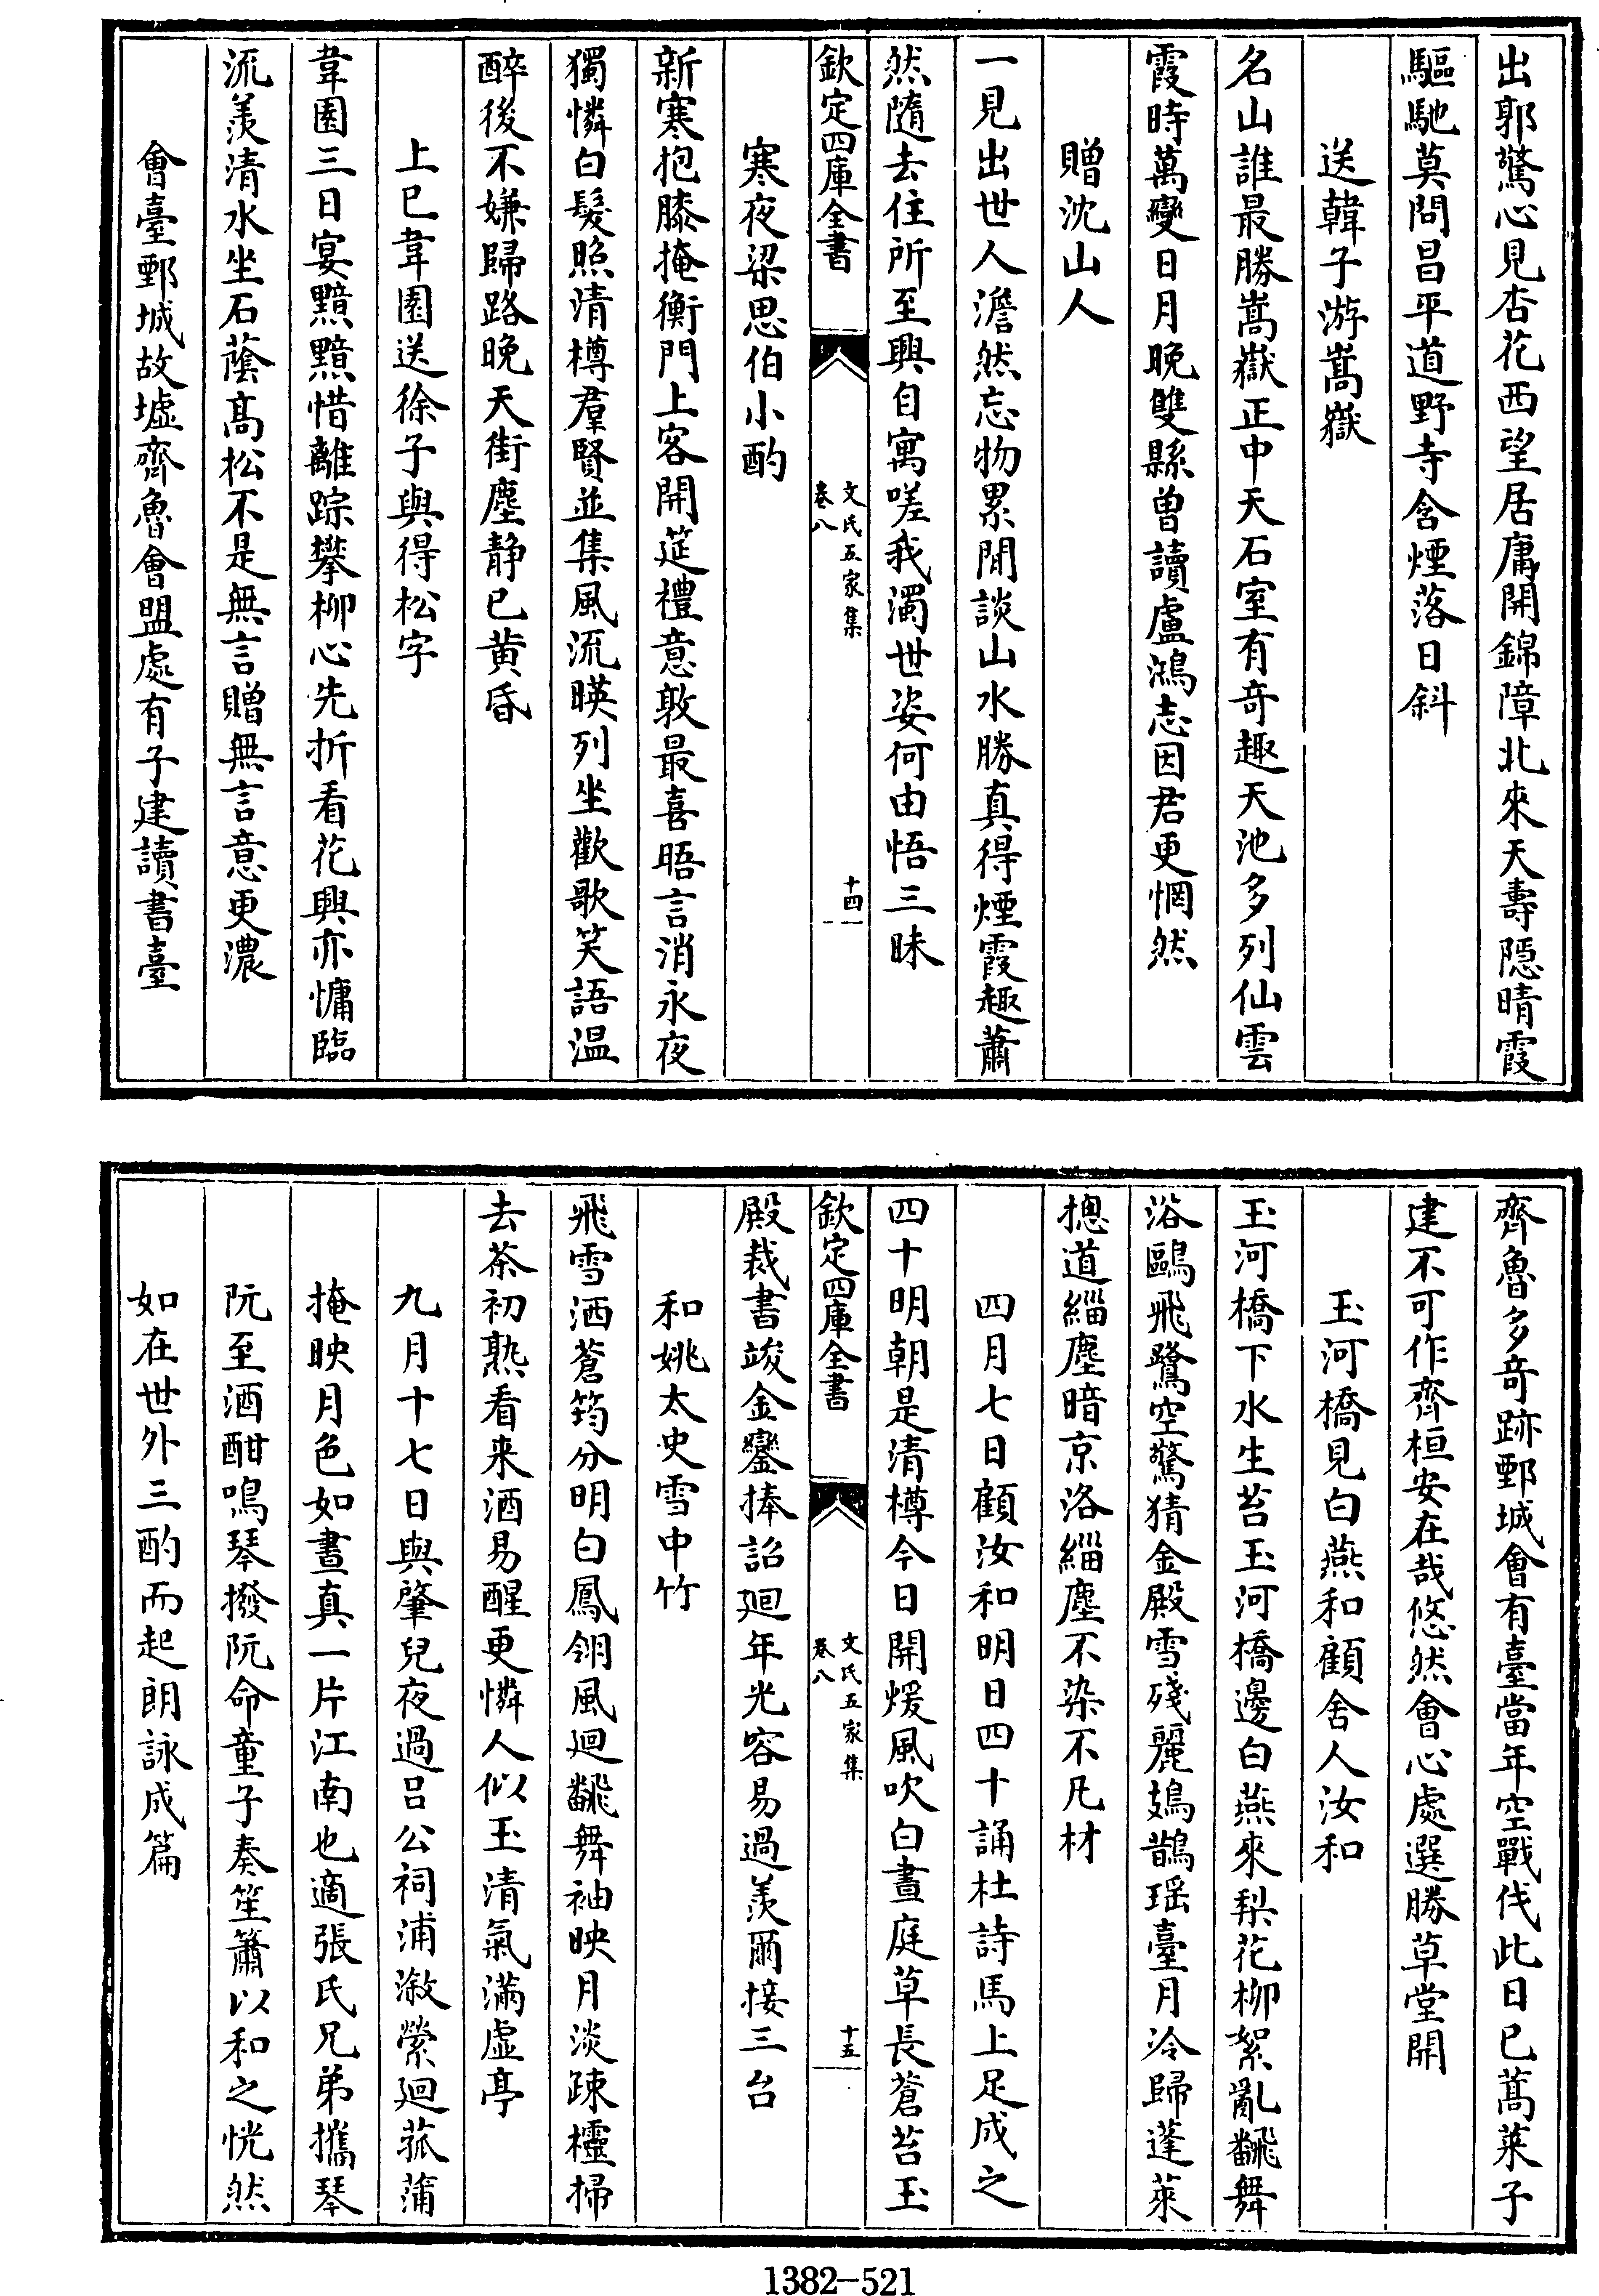 出郭驚心見杏花西望居庸開錦障北來天壽隠晴霞
驅馳莫問昌平道野寺含煙落日斜
送韓子游嵩嶽
名山誰最勝嵩嶽正中天石室有奇趣天池多列仙雲
霞時萬變日月晩雙縣曽讀盧鴻志因君更惘然
贈沈山人
一見出世人澹然忘物累閒談山水勝真得煙霞趣蕭
然隨去住所至興自寓嗟我濁世姿何由悟三昧
欽定四庫全書
文氏五家集
卷八
十四
寒夜梁思伯小酌
新寒抱膝掩衡門上客開筵禮意敦最喜晤言消永夜
獨憐白髮照清樽羣賢並集風流暎列坐歡歌笑語温
醉後不嫌歸路晚天街塵静已黄昏
上巳韋園送徐子與得松字
韋園三日宴黯黯惜離踪攀柳心先折看花興亦慵臨
流羨清水坐石蔭髙松不是無言贈無言意更濃
會臺鄄城故墟齊魯會盟處有子建讀書臺
齊魯多奇跡鄄城會有臺當年空戰伐此日已蒿萊子
建不可作齊桓安在哉悠然會心處選勝草堂開
玉河橋見白燕和顧舍人汝和
玉河橋下水生苔玉河橋邊白燕來梨花柳絮亂翻舞
浴鷗飛鷺空驚猜金殿雪殘麗鳷鵲瑶臺月冷歸蓬萊
摠道緇塵暗京洛緇塵不染不凡材
四月七日顧汝和明日四十誦杜詩馬上足成之
四十明朝是清樽今日開煖風吹白晝庭草長蒼苔玉
欽定四庫全書
文氏五家集
卷八
十五
殿裁書竣金鑾捧詔廻年光容易過羨爾接三台
和姚太史雪中竹
飛雪洒蒼筠分明白鳳翎風廻翻舞袖映月淡疎櫺掃
去茶初熟看来酒易醒更憐人似玉清氣滿虚亭
九月十七日與肇兒夜過吕公祠浦溆縈廻菰蒲
掩映月色如晝真一片江南也適張氏兄弟攜琴
阮至酒酣鳴琴撥阮命童子奏笙簫以和之恍然
如在世外三酌而起朗詠成篇
1382-521